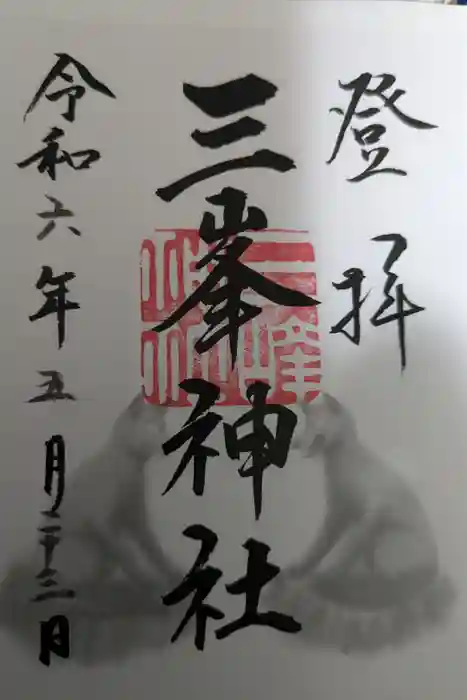 登拝
三峯神社
令和六年五月二十三日